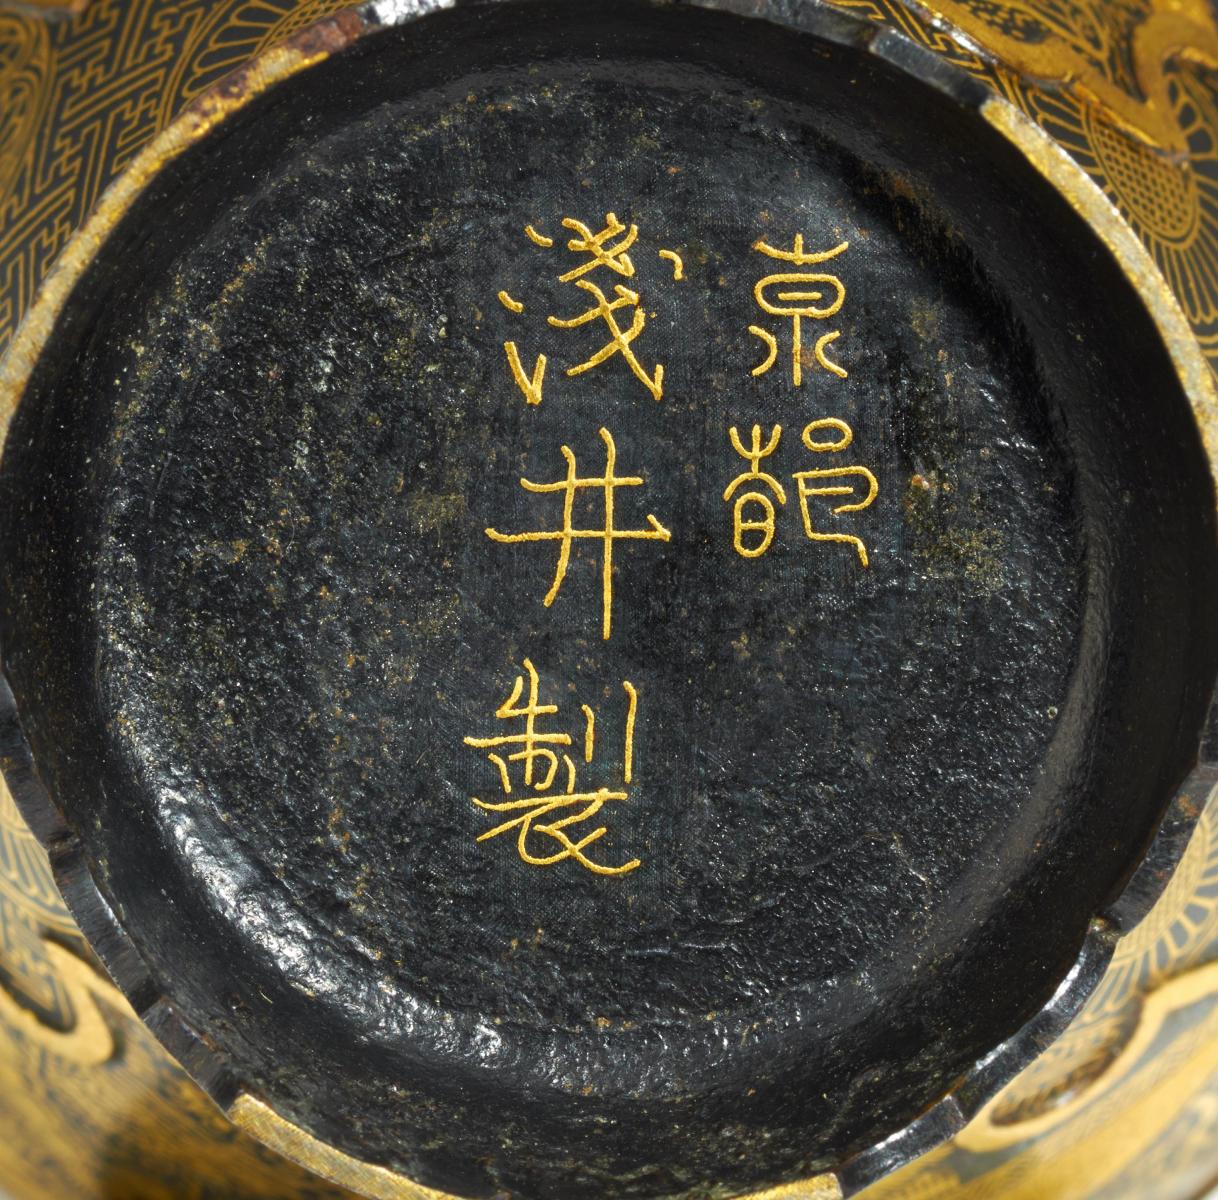 京都
淺井製